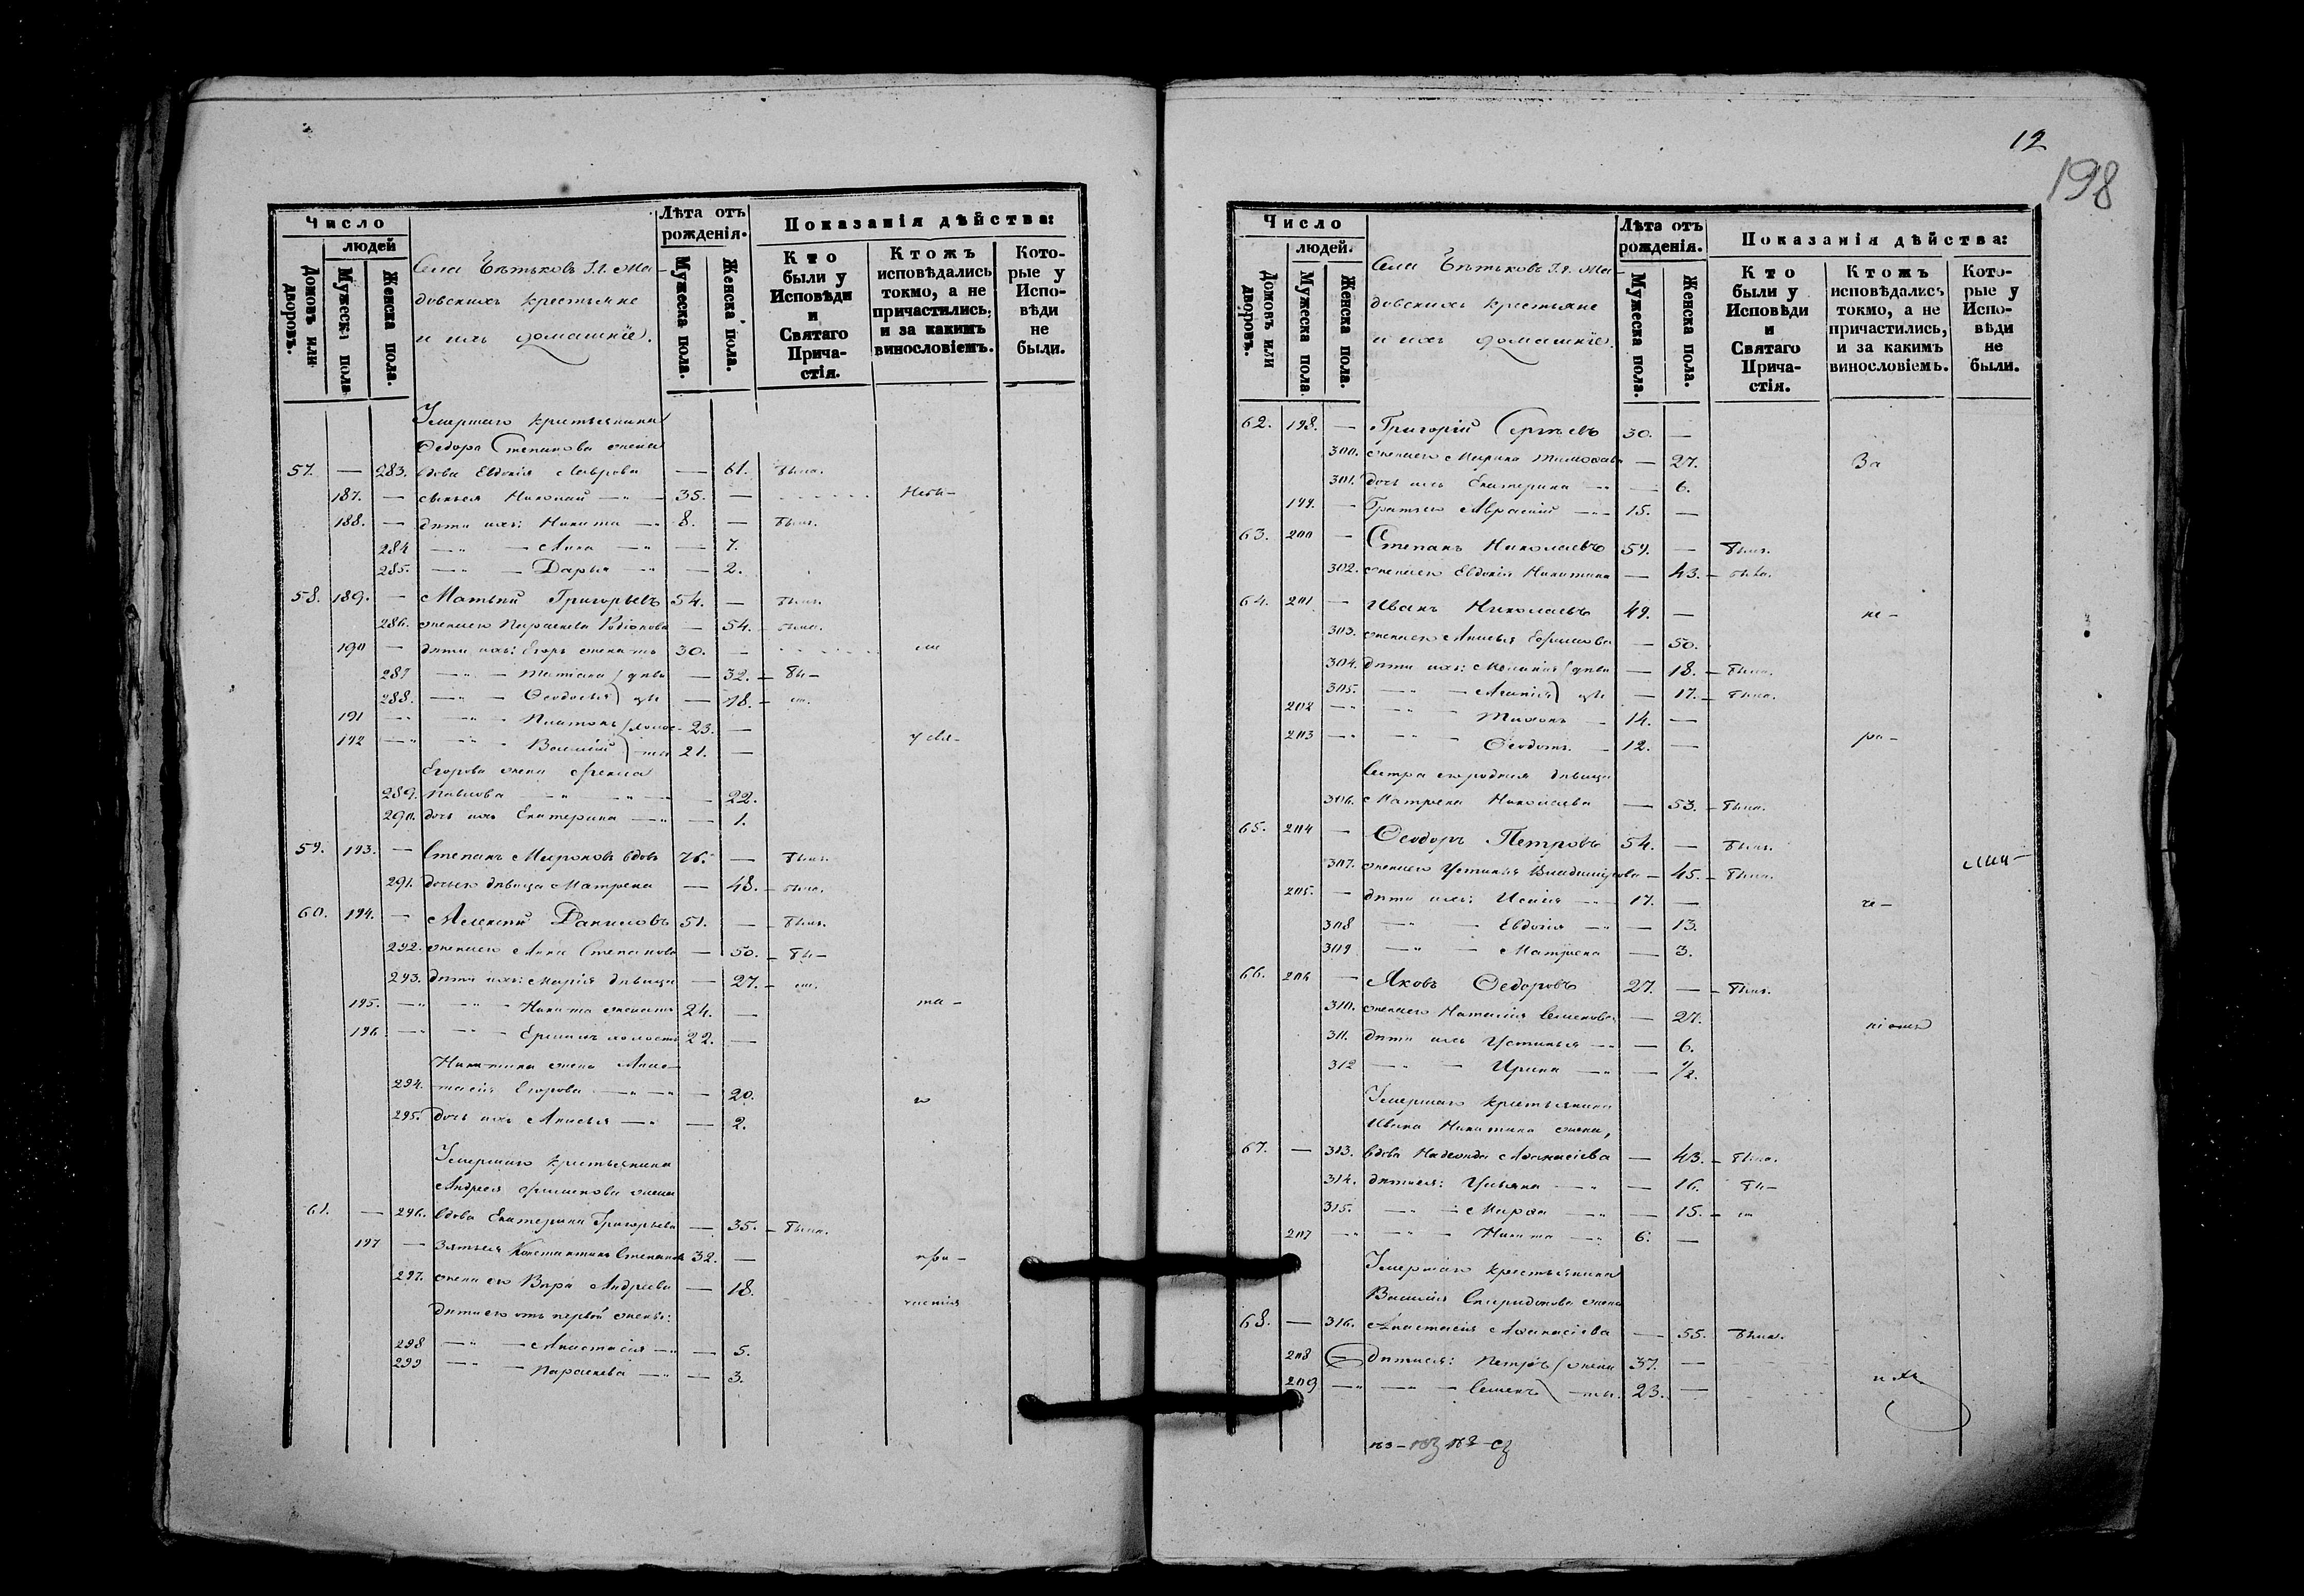 Число
людей
Домовъ или дворовъ.
Мужеска пола
Женска пола.
Лѣта отъ рожденія.
Мужеска пола.
Женска пола.
Показанія дѣйства:
Кто были у Исповѣди и Святаго Причастія.
Ктожъ исповѣдались токмо, а не причастились, и за какимъ винословіемъ.
Которые у Исповѣди не были.
крестьяне
и ихъ домашніе.
Умершаго крестьянина
Федора Степанова жена
57. — 283. вдова Евдокія Лаврова — 61. была.
187. — сынъ ея Николай —„— 35. —
188. — дѣти ихъ: Никита —„ 8. — былъ.
284 —„— Анна —„ — 7.
285. —„— Дарья —„ — 2.
58. 189. — Матвѣй Григорьевъ 54. — былъ.
286. жена его Параскева Родіонова — 54. — была.
190 — дѣти ихъ: Егоръ женатъ 30. —
287 —„— Татіана — 32. — бы-
288. —„— Ѳеодосья — 18. — ли.
191 —„— Платонъ 23. —
192 —„— Василій 21. —
Егорова жена
289. Павлова —„— 22.
290. дочь ихъ Екатерина —„ — 1.
59. 193. — Степанъ Мироновъ вдовъ 76. — былъ.
291. дочь его дѣвица Матрена — 48. — была.
60. 194. — Алексѣй Даниловъ 51. — былъ.
292. жена его Анна Степанова — 50. — бы-
293. дѣти ихъ: Марія дѣвица — 27. — ли.
195. —„— Никита женатъ 24. —
196. —„— Ермилъ холостъ 22. —
Никитина жена Анас-
294. тасія Егорова —„— 20.
295. дочь ихъ Анисья —„ — 2.
Умершаго крестьянина
Андрея жена
61. — 296. вдова Екатерина Григорьева — 35. — была.
197 — зять ея Константинъ Степановъ 32. — при-
297. жена его Вѣра Андреева — 18.
частія
дѣти его отъ первой жены:
298 —„— Анастасія —„ — 5.
299 —„— Параскева —„ — 3.
12
198
Число
людей.
Домовъ или дворовъ.
Мужеска пола
Женска пола.
Лѣта отъ рожденія.
Мужеска пола.
Женска пола.
Показанія дѣйства:
Кто были у Исповѣди и Святаго Причастія.
Ктожъ исповѣдались токмо, а не причастились, и за какимъ винословіемъ.
Которые у Исповѣди не были.
крестьяне
и ихъ домашніе.
62. 198. — Григорій Сергѣевъ 30. —
300. жена его Марина — 27. За
301. дочь ихъ Екатерина —„ — 6.
199. — Братъ его 15. —
63. 200 — Степанъ Николаевъ 59. — былъ.
302. жена его Евдокія Никитина — 43. — была.
64. 201 — Иванъ Николаевъ 49. — не-
303. жена его Анисья Ефимова — 50.
304. дѣти ихъ: — 18. — была.
305. —„— — 17. — была.
202 —„— Тихонъ — 14. —
203 —„— Ѳеодотъ — 12. — ра-
Сестра его родная дѣвица
306. Матрена Николаева — 53. — была.
65. 204 — Ѳеодоръ Петровъ 54. — былъ.
307. жена его Устинья — 45. — была.
205. — дѣти ихъ: Исаія —„ 17. —
308 —„— Евдокія —„ — 13.
309 —„— Матрена — 3.
66. 206 — Яковъ Федоровъ 27. — былъ.
310. жена его Наталія Семенова — 27.
311. дѣти ихъ Устинья —„ — 6.
312 —„— Ирина —„ — 1/2.
Умершаго крестьянина
Ивана Никитина жена,
67. — 313. вдова Надежда Аѳанасіева — 43. — была.
314. дѣти ея: Ульяна —„ — 16. бы-
315. —„— Марѳа —„ — 15. — ли
207 —„— Никита —„ 6. —
Умершаго крестьянина
Василія Спиридонова жена
68. — 316. Анастасія Аѳанасіева — 55. была.
208 — дѣти ея: Петръ 37. —
209 —„— Семенъ 23. —